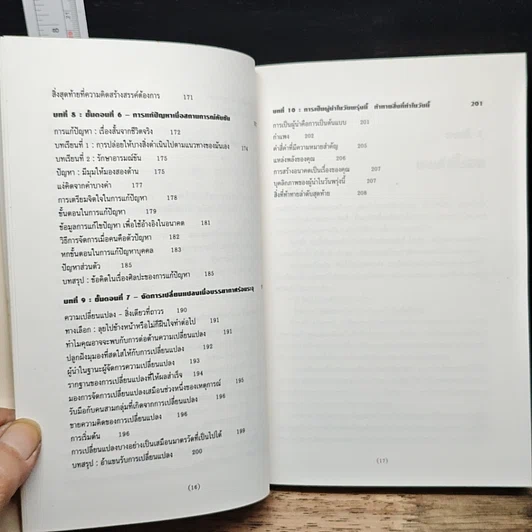 สิ่งสุดท้ายที่ความคิดสร้างสรรค์ต้องการ 171
บทที่ 8 : ขั้นตอนที่ 6 – การแก้ปัญหาเมื่อสถานการณ์คับขัน
การแก้ปัญหา : เรื่องสั้นจากชีวิตจริง 172
บทเรียนที่ 1 : การปล่อยให้บางสิ่งดำเนินไปตามแนวทางของมันเอง 174
บทเรียนที่ 2 : รักษาอารมณ์ขัน 175
ปัญหา : มีมุมให้มองสองด้าน 175
แง่คิดจากคำบางคำ 177
การเตรียมจิตใจในการแก้ปัญหา 178
ขั้นตอนในการแก้ปัญหา 179
ข้อมูลการแก้ไขปัญหา เพื่อใช้อ้างอิงในอนาคต 181
วิธีการจัดการเมื่อคนคือตัวปัญหา 182
หกขั้นตอนในการแก้ปัญหาบุคคล 183
ปัญหาส่วนตัว 185
บทสรุป : ข้อคิดในเรื่องศิลปะของการแก้ปัญหา 185
บทที่ 9 : ขั้นตอนที่ 7 – จัดการเปลี่ยนแปลงเมื่อบรรยากาศร้อนระอุ
ความเปลี่ยนแปลง – สิ่งเดียวที่ถาวร 190
ทางเลือก : ลุยไปข้างหน้าหรือไม่ก็ฝืนใจทำต่อไป 191
ทำไมคุณอาจจะพบกับการต่อต้านความเปลี่ยนแปลง 191
ปลูกฝังมุมมองที่สดใสให้กับการเปลี่ยนแปลง 192
ผู้นำในฐานะผู้จัดการความเปลี่ยนแปลง 193
รากฐานของการเปลี่ยนแปลงที่ให้ผลสำเร็จ 194
มองการจัดการเปลี่ยนแปลงเสมือนช่วงหนึ่งของเหตุการณ์ 195
รับมือกับคนสามกลุ่มที่เกิดจากการเปลี่ยนแปลง 196
ขายความคิดของการเปลี่ยนแปลง 196
การเริ่มต้น 196
การเปลี่ยนแปลงบางอย่างเป็นเสมือนมาตรวัดที่เป็นไปได้ 198
บทสรุป : อ้าแขนรับการเปลี่ยนแปลง 200
(16)
บทที่ 10 : การเป็นผู้นำในวันพรุ่งนี้ ท้าทายสิ่งที่ทำในวันนี้ 201
การเป็นผู้นำคือการเป็นต้นแบบ 201
กำแพง 202
คำสี่คำที่มีความหมายสำคัญ 205
แหล่งพลังของคุณ 206
การสร้างอนาคตเป็นเรื่องของคุณ 207
บุคลิกภาพของผู้นำในวันพรุ่งนี้ 207
สิ่งที่ท้าทายลำดับสุดท้าย 208
(17)